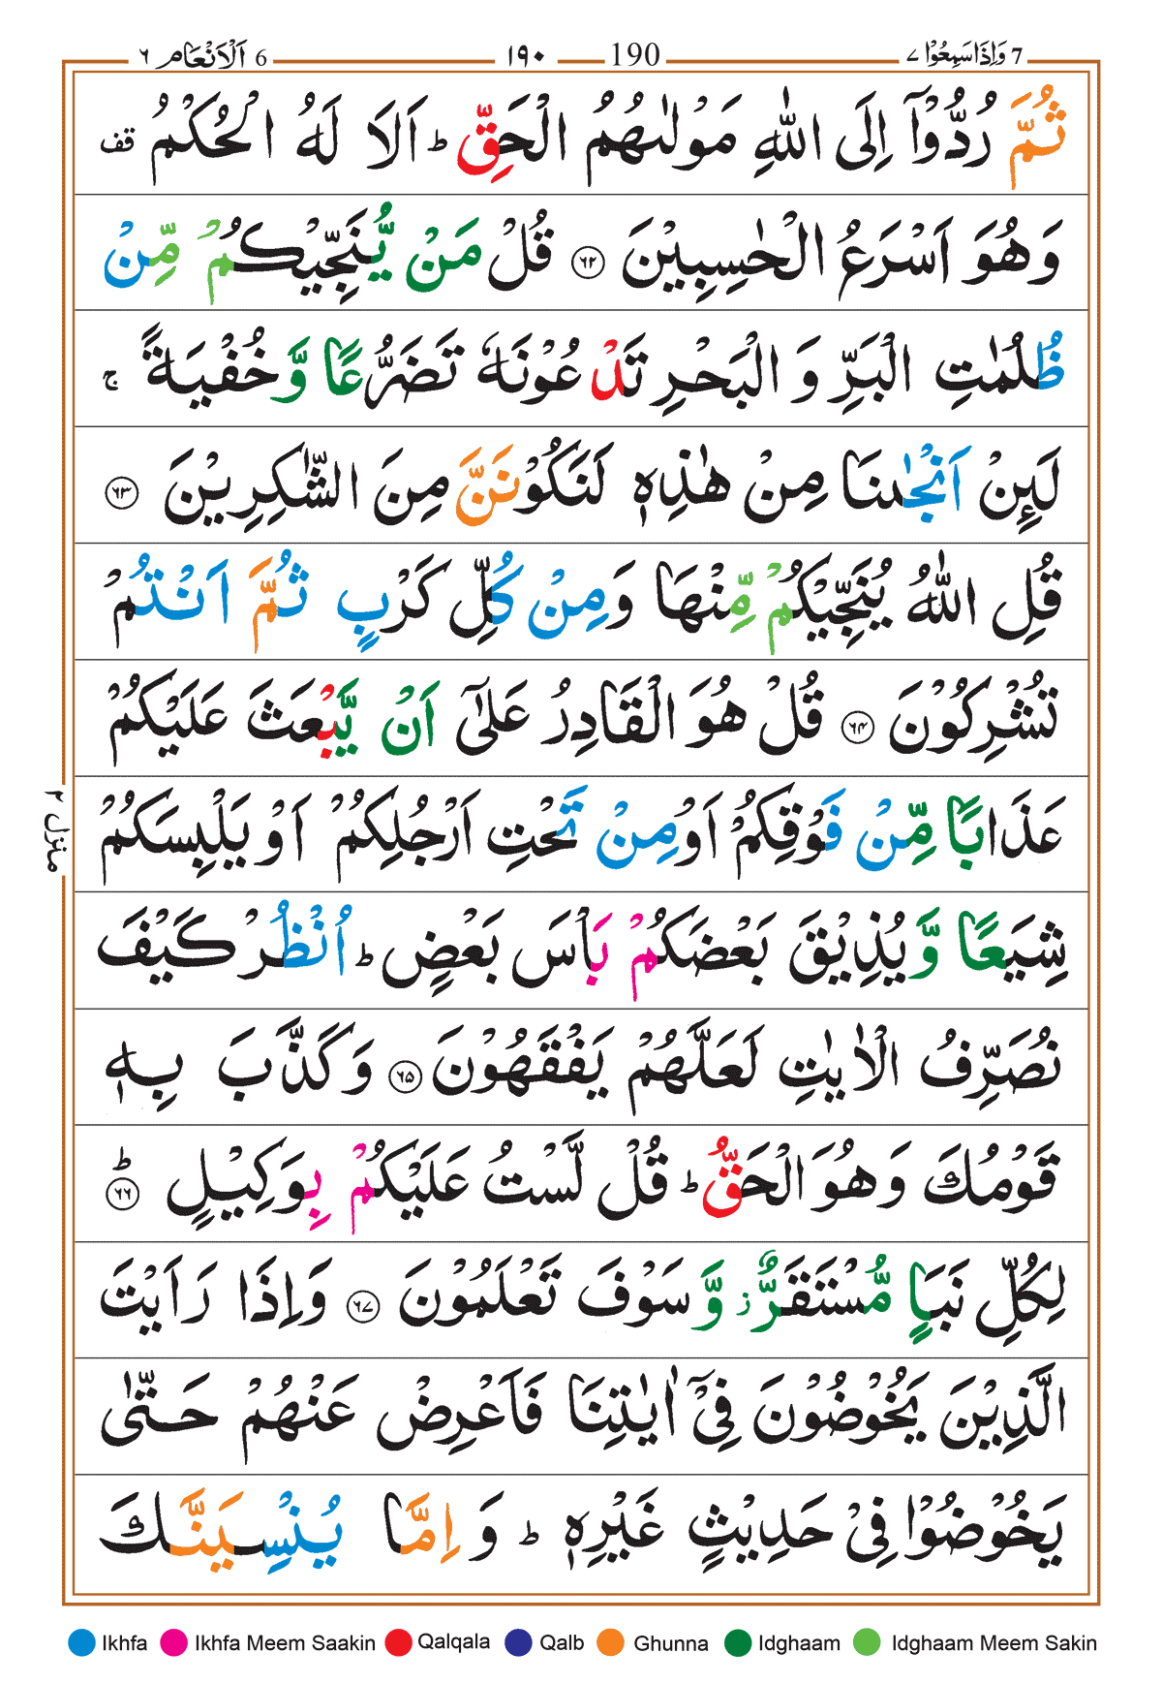 7 وَاِذَاسَمِعُوْا ٧ 190 ١٩٠ 6 اَلْاَنْعَام ٦
ثُمَّ رُدُّوْۤا اِلَى اللّٰهِ مَوْلٰىهُمُ الْحَقِّ ؕ اَلَا لَهُ الْحُكْمُ قف
وَهُوَ اَسْرَعُ الْحٰسِبِيْنَ ۶۲ قُلْ مَنْ يُّنَجِّيْكُمْ مِّنْ
ظُلُمٰتِ الْبَرِّ وَ الْبَحْرِ تَدْعُوْنَهٗ تَضَرُّعًا وَّ خُفْيَةً ۚ
لَىِٕنْ اَنْجٰىنَا مِنْ هٰذِهٖ لَنَكُوْنَنَّ مِنَ الشّٰكِرِيْنَ ۶۳
قُلِ اللّٰهُ يُنَجِّيْكُمْ مِّنْهَا وَمِنْ كُلِّ كَرْبٍ ثُمَّ اَنْتُمْ
تُشْرِكُوْنَ ۶۴ قُلْ هُوَ الْقَادِرُ عَلٰۤى اَنْ يَّبْعَثَ عَلَيْكُمْ
عَذَابًا مِّنْ فَوْقِكُمْ اَوْ مِنْ تَحْتِ اَرْجُلِكُمْ اَوْ يَلْبِسَكُمْ
شِيَعًا وَّ يُذِيْقَ بَعْضَكُمْ بَاْسَ بَعْضٍ ؕ اُنْظُرْ كَيْفَ
نُصَرِّفُ الْاٰيٰتِ لَعَلَّهُمْ يَفْقَهُوْنَ ۶۵ وَكَذَّبَ بِهٖ
قَوْمُكَ وَهُوَ الْحَقُّ ؕ قُلْ لَّسْتُ عَلَيْكُمْ بِوَكِيْلٍ ؕ ۶۶
لِكُلِّ نَبَاٍ مُّسْتَقَرٌّ ؗ وَّ سَوْفَ تَعْلَمُوْنَ ۶۷ وَاِذَا رَاَيْتَ
الَّذِيْنَ يَخُوْضُوْنَ فِيْۤ اٰيٰتِنَا فَاَعْرِضْ عَنْهُمْ حَتّٰى
يَخُوْضُوْا فِيْ حَدِيْثٍ غَيْرِهٖ ؕ وَ اِمَّا يُنْسِيَنَّكَ
منزل ٢
Ikhfa Ikhfa Meem Saakin Qalqala Qalb Ghunna Idghaam Idghaam Meem Sakin